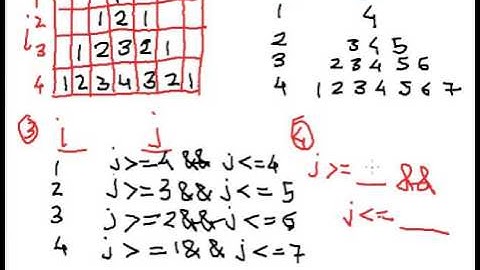 1 4
2 1 2 1 2 3 4 5
3 1 2 3 2 1 3 2 3 4 5 6
4 1 2 3 4 3 2 1 4 1 2 3 4 5 6 7
③ i j ④
1 j>=4 && j<=4
2 j>=3 && j<=5
3 j>=2 && j<=6
4 j>=1 && j<=7
j>= __ &&
j<= ___